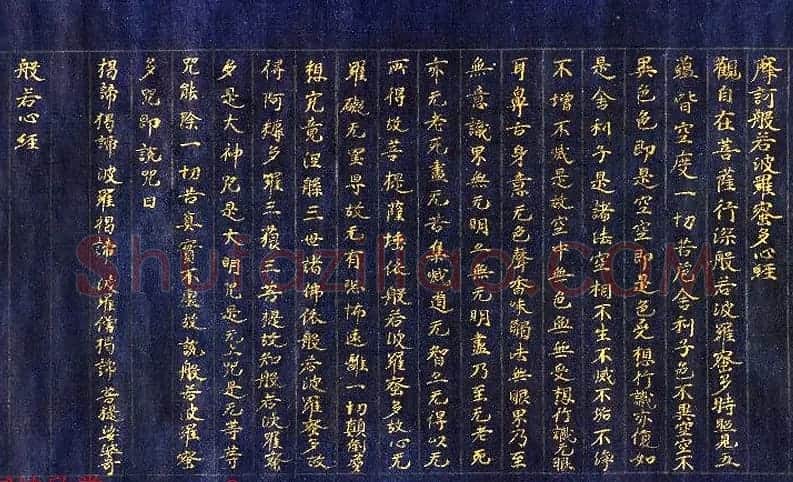 摩訶般若波羅蜜多心經
觀自在菩薩行深般若波羅蜜多時照見五
蘊皆空度一切苦厄舍利子色不異空空不
異色色即是空空即是色受想行識亦復如
是舍利子是諸法空相不生不滅不垢不淨
不增不減是故空中無色無受想行識无眼
耳鼻舌身意无色聲香味觸法無眼界乃至
無意識界無无明亦無无明盡乃至无老死
亦无老死盡无苦集滅道无智亦无得以无
所得故菩提薩埵依般若波羅蜜多故心无
罣礙无罣导故无有恐怖遠離一切顛倒夢
想究竟涅槃三世諸佛依般若波羅蜜多故
得阿耨多羅三藐三菩提故知般若波羅蜜
多是大神咒是大明咒是无上咒是无等等
咒能除一切苦真實不虛故說般若波羅蜜
多咒即說咒曰
揭諦揭諦波羅揭諦 波羅僧揭諦 菩提娑婆訶
般若心經
Shufaziliao.com